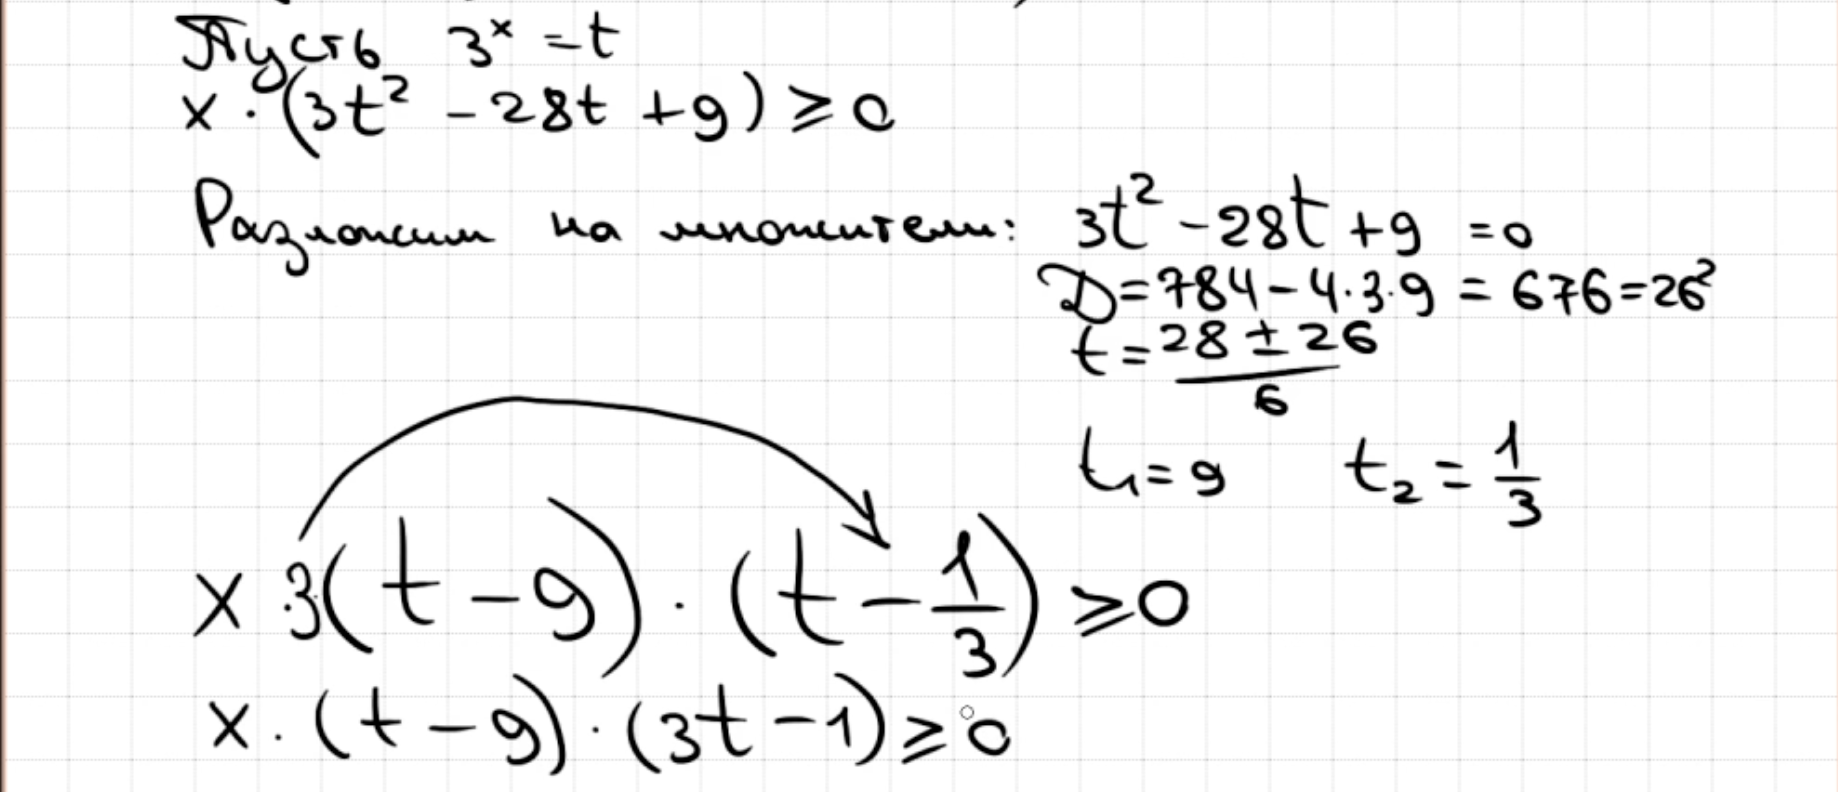 Пусть 3ˣ = t
x · (3t² - 28t + 9) ≥ 0
Разложим на множители: 3t² - 28t + 9 = 0
D = 784 - 4·3·9 = 676 = 26²
t = (28 ± 26)/6
t₁ = 9 t₂ = 1/3
x · 3(t - 9) · (t - 1/3) ≥ 0
x · (t - 9) · (3t - 1) ≥ 0